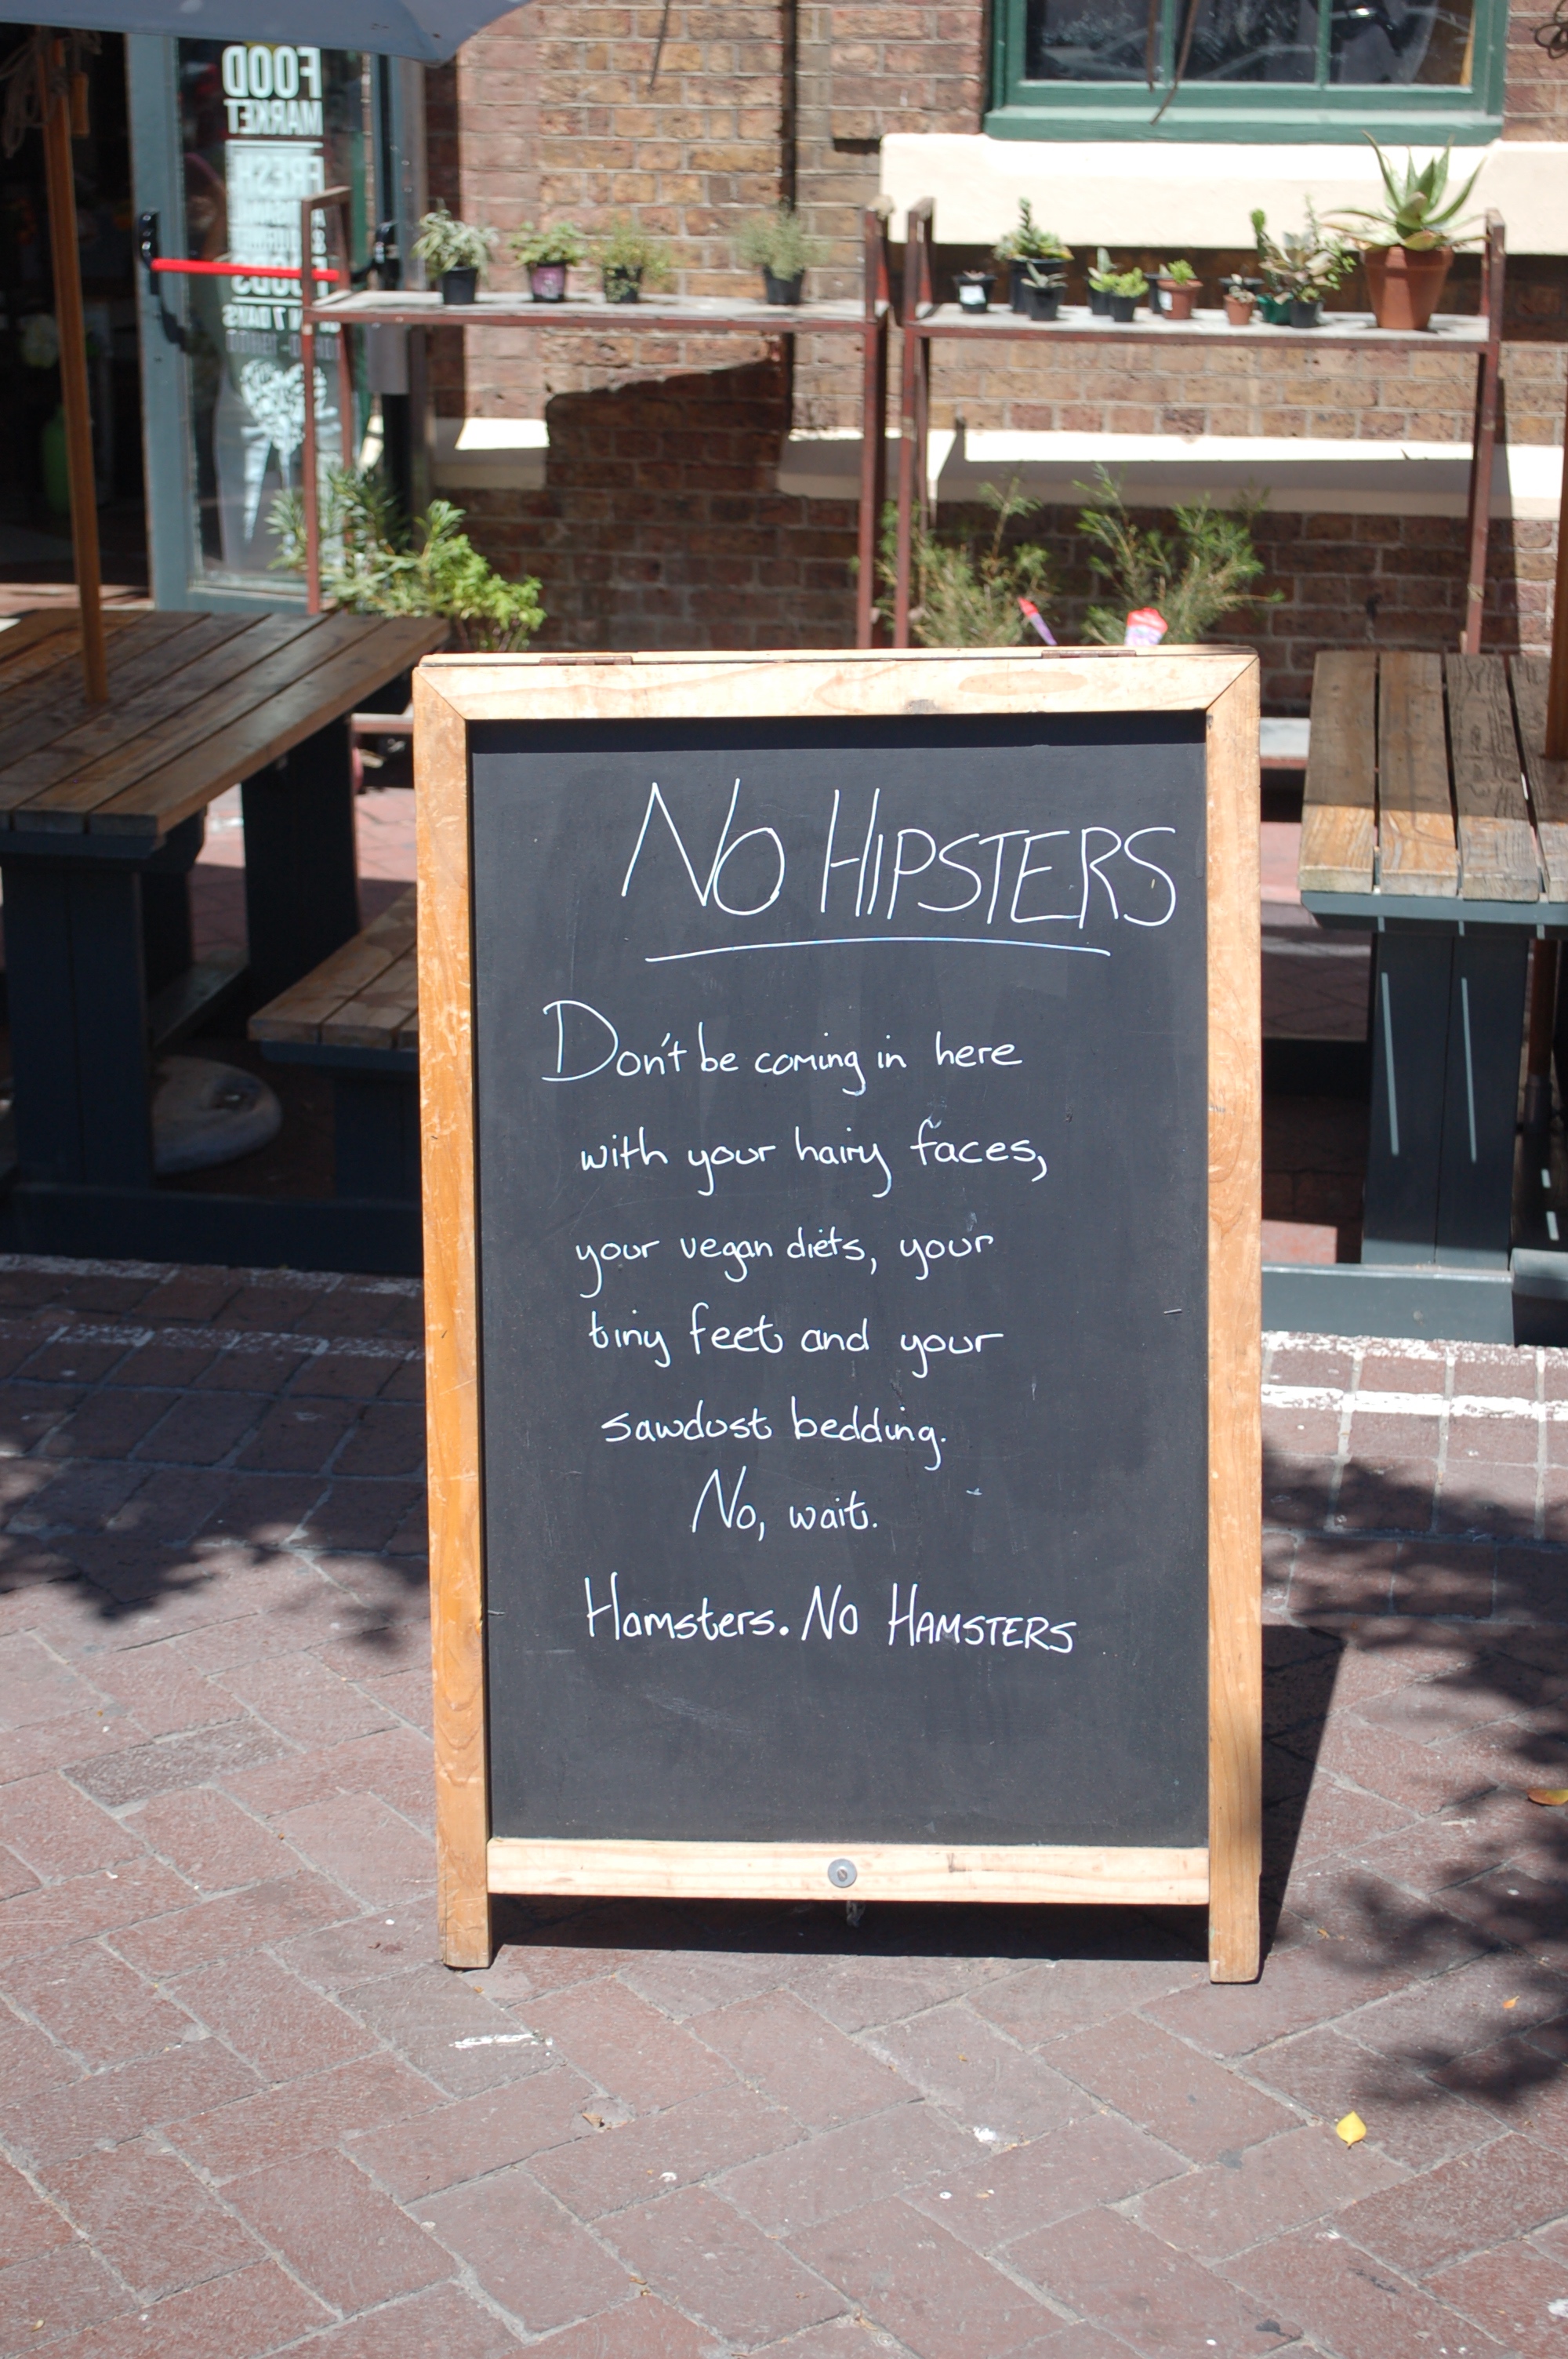 FOOD
MARKET
FRESH
7 DAYS
NO HIPSTERS
Don't be coming in here
with your hairy faces,
your vegan diets, your
tiny feet and your
sawdust bedding.
No, wait.
Hamsters. NO HAMSTERS